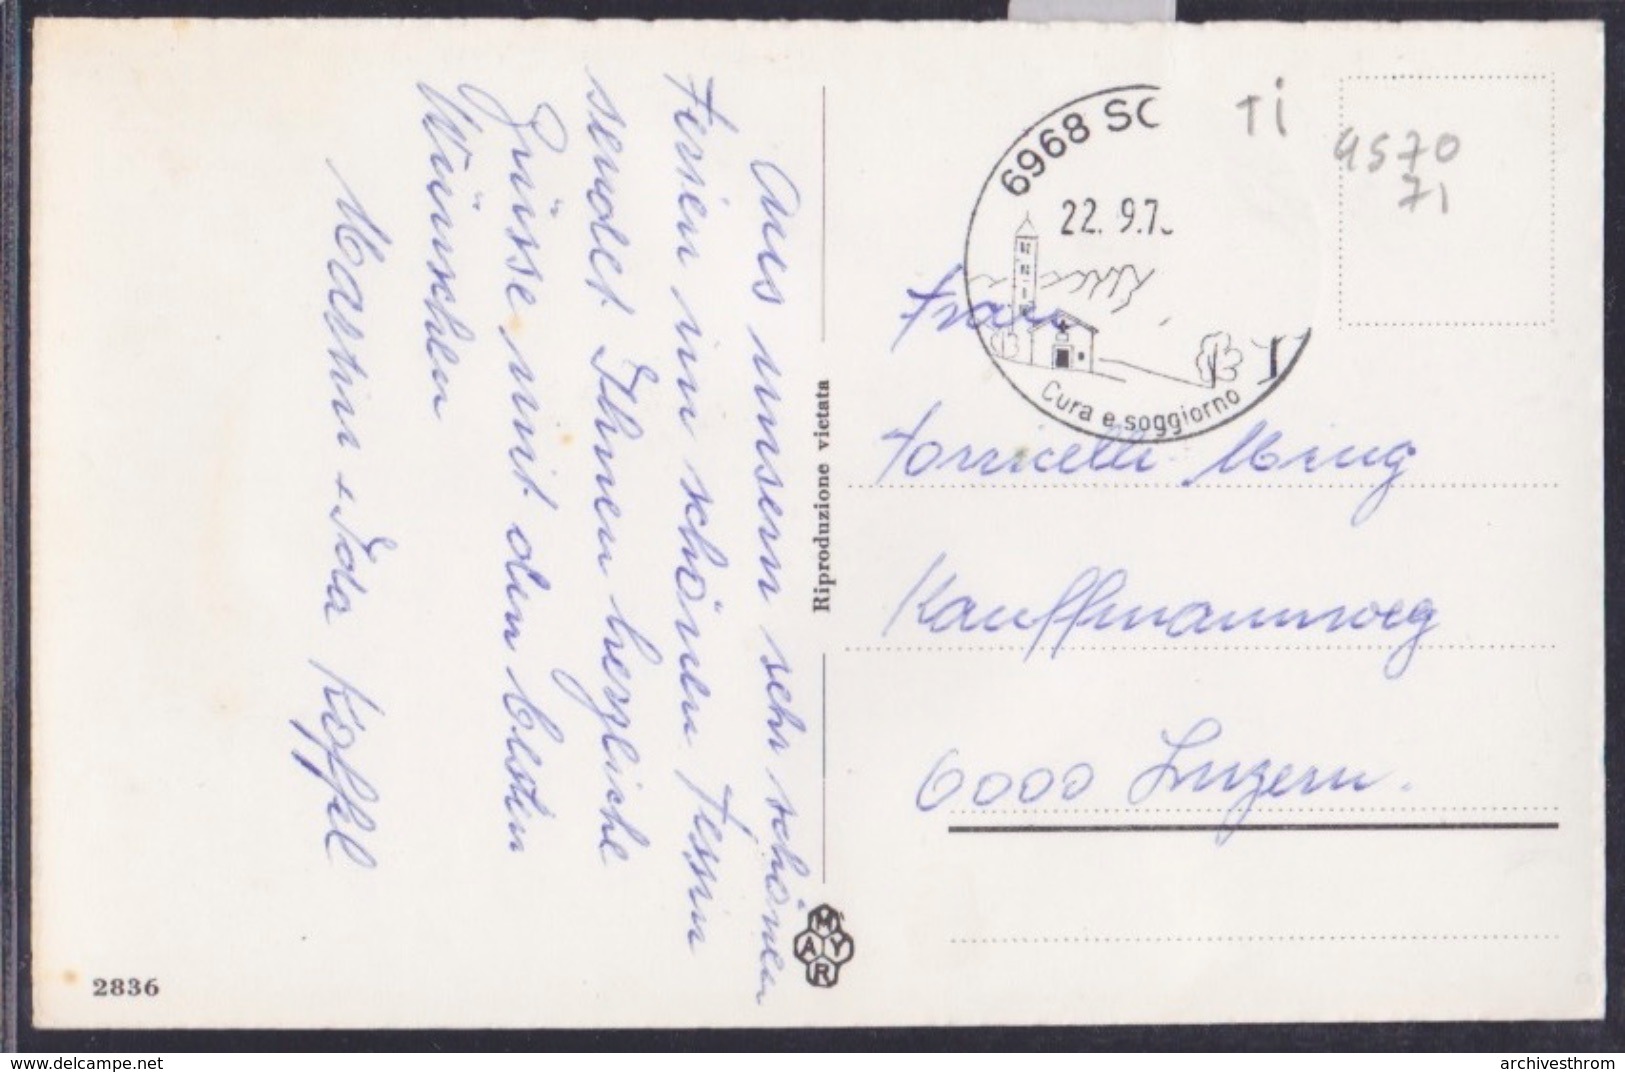 Aus unsern sehr schönen
Ferien im schönen Tessin
sendet Ihnen herzliche
Grüsse mit den besten
Wünschen
Martin + Ida Köffel
2836
Riproduzione vietata
MAYR
6968 SO
22.9.7
Cura e soggiorno
TI
4570
71
Frau
Torricelli-Ming
Kauffmannweg
6000 Luzern.
www.delcampe.net
archivesthrom